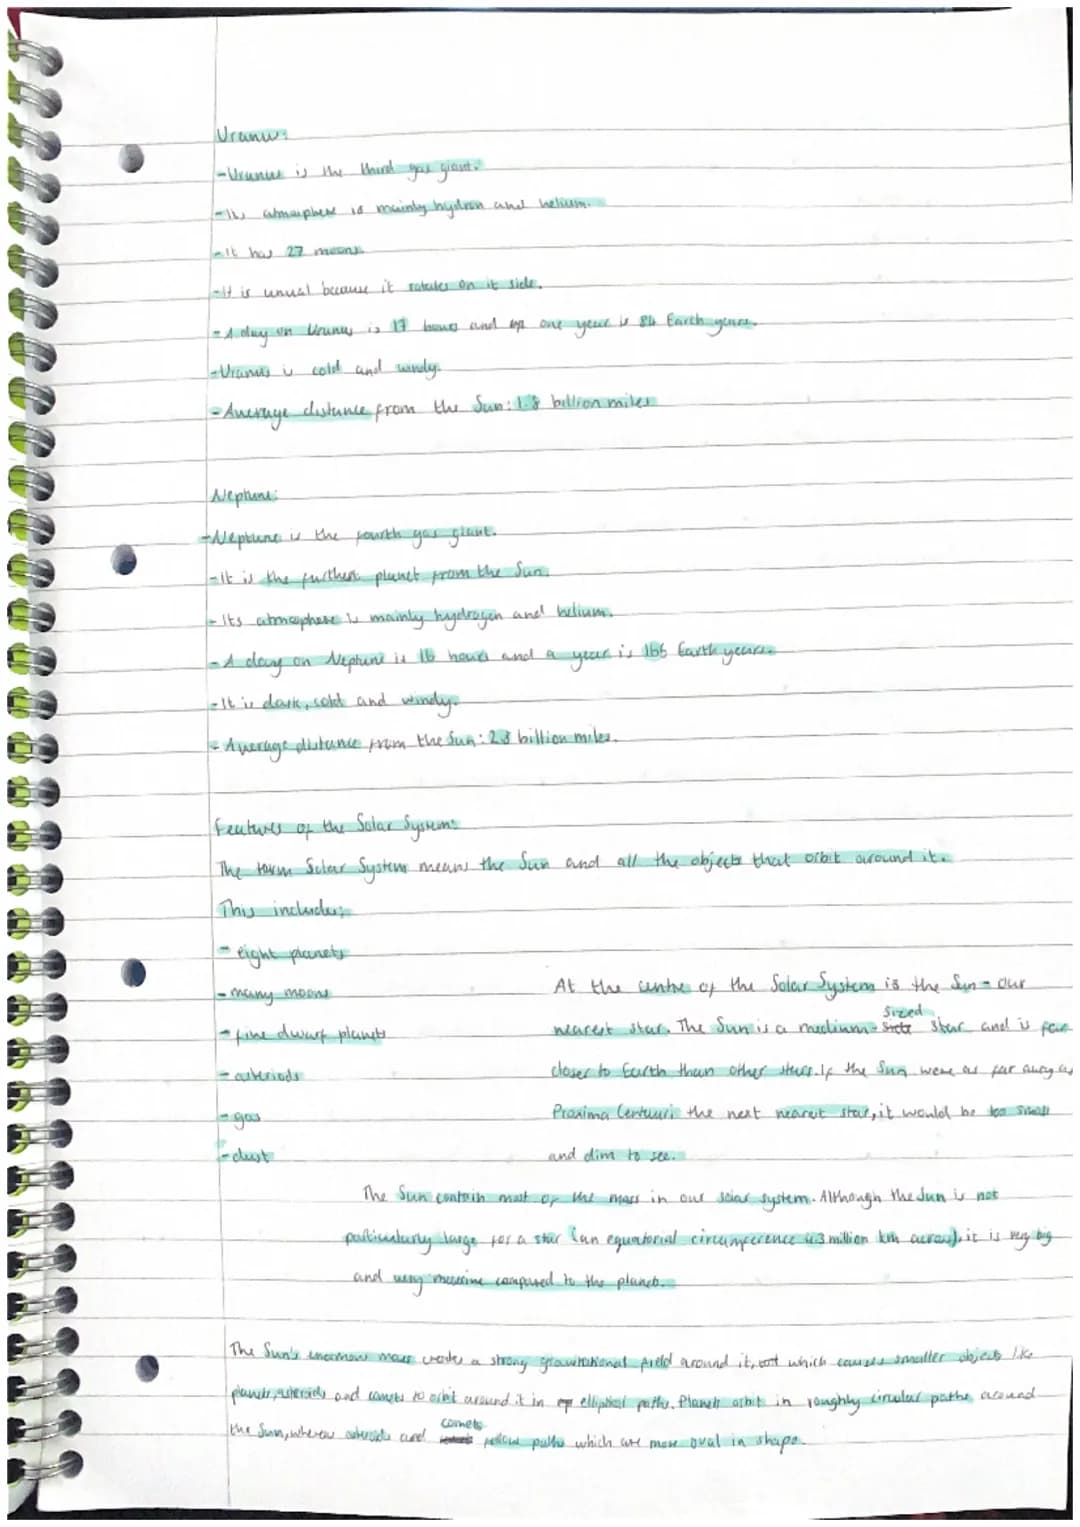 Uranus:
-Uranus is the third gas giant.
-Its atmosphere is mainly hydron and helium.
-It has 27 moons.
-It is unual because it rotates on it side.
-A day on Uranus is 17 hours and one year is 84 Earth years.
-Uranus is cold and windy.
-Average distance from the Sun: 1.8 billion miles
Neptune:
-Neptune is the fourth gas giant.
-It is the furthest planet from the Sun.
-Its atmosphere is mainly hydrogen and helium.
-A day on Neptune is 16 hours and a year is 165 Earth years.
-It is dark, cold and windy.
-Average distance from the Sun: 2.8 billion miles.
Features of the Solar System:
The term Solar System means the Sun and all the objects that orbit around it.
This includes:
-eight planets
-many moons
-five dwarf planets
-asteriods
-gas
-dust
At the centre of the Solar System is the Sun - our
nearest star. The Sun is a medium-sized star and is far
closer to Earth than other stars. If the Sun were as far away as
Proxima Centauri the next nearest star, it would be too small
and dim to see.
The Sun contain most of the mass in our solar system. Although the Sun is not
particularly large for a star (an equatorial circumference 4.3 million km across), it is very big
and very massive compared to the planets.
The Sun's enormous mass creates a strong gravitational field around it, which causes smaller objects like
planets, asteroids and comets to orbit around it in elliptical paths. Planets orbit in roughly circular paths around
the Sun, whereas asteroids and comets follow paths which are more oval in shape.